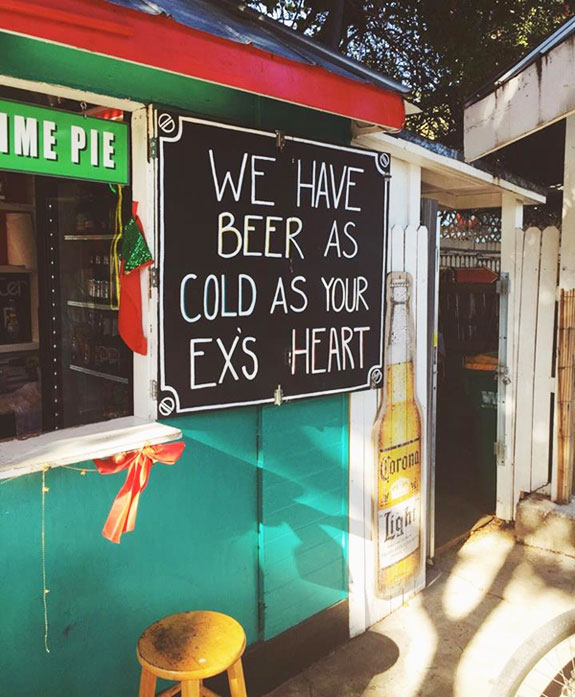 IME PIE
WE HAVE
BEER AS
COLD AS YOUR
EX'S HEART
Corona
Light